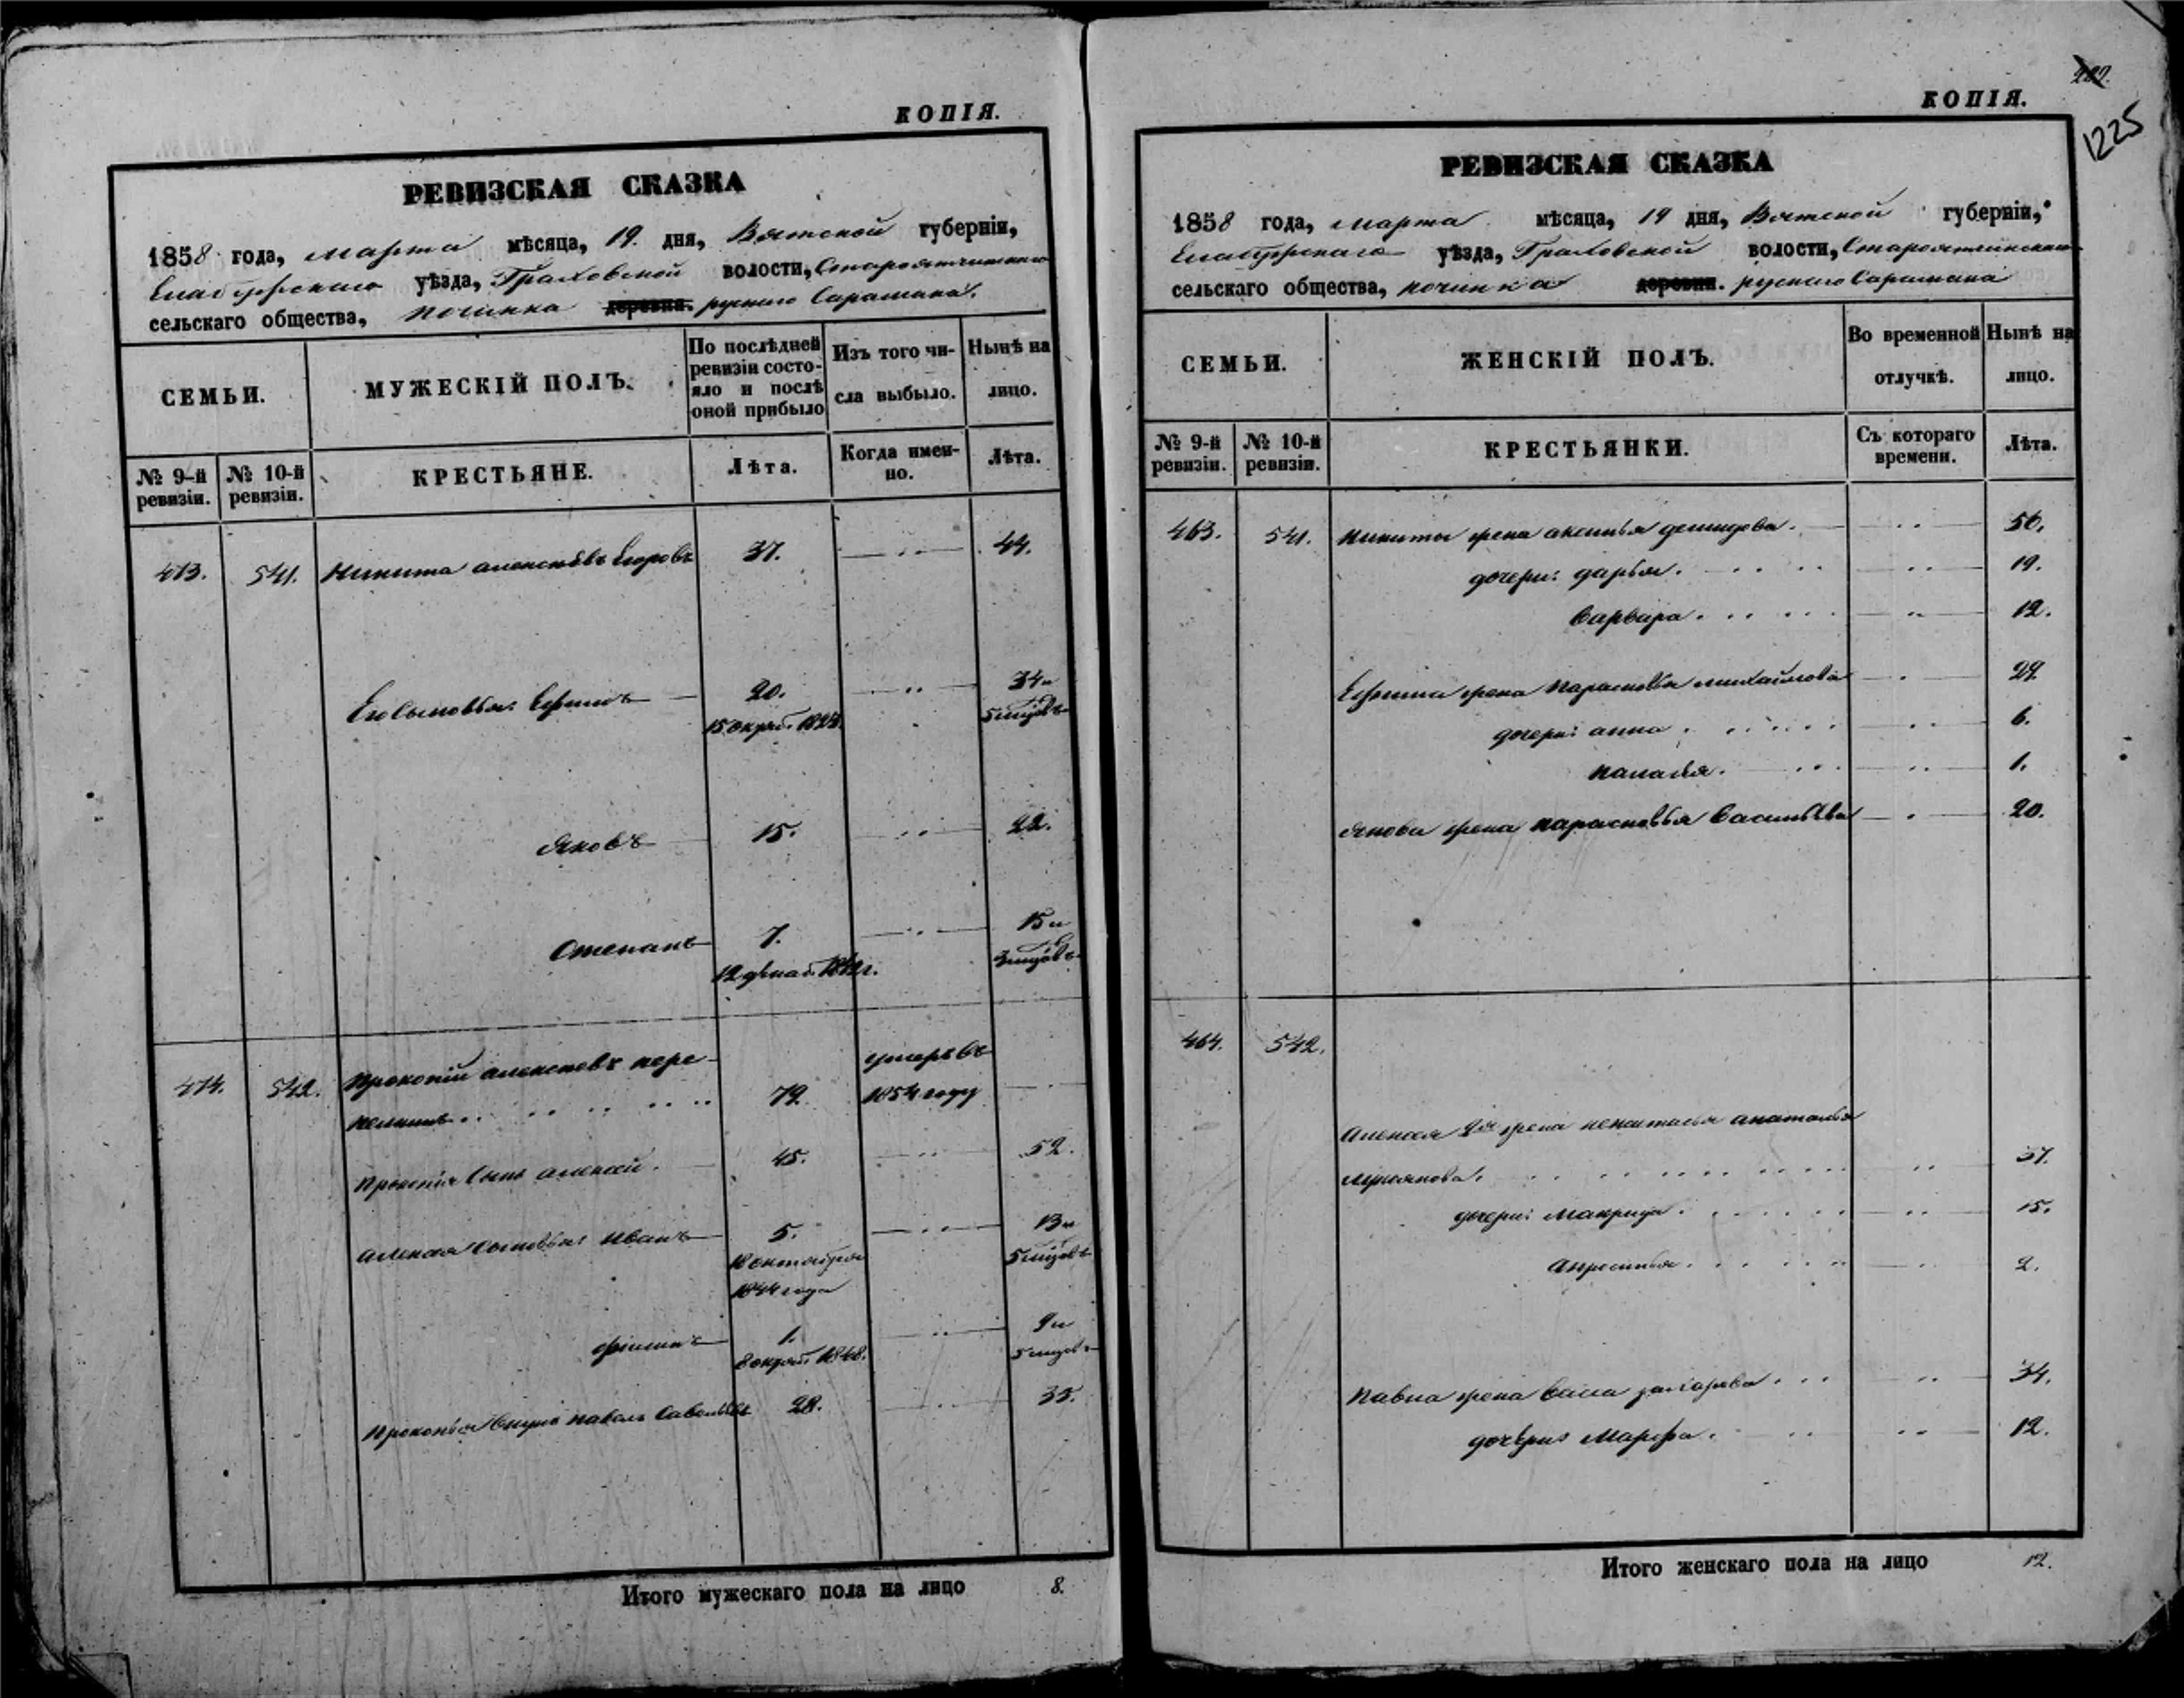 КОПІЯ.
РЕВИЗСКАЯ СКАЗКА
1858 года, марта мѣсяца, 19. дня, Вятской губерніи,
Елабужскаго уѣзда, Граховской волости, Староятчинскаго
сельскаго общества, починка деревни. рускаго Сарамака.
СЕМЬИ.
МУЖЕСКІЙ ПОЛЪ.
По послѣдней
ревизіи состо-
яло и послѣ
оной прибыло
Изъ того чи-
сла выбыло.
Нынѣ на
лицо.
№ 9-й
ревизіи.
№ 10-й
ревизіи.
КРЕСТЬЯНЕ.
Лѣта.
Когда имен-
но.
Лѣта.
473. 541. Никита алексѣевъ Егоровъ 37. 44.
Его сыновья: Ефимъ 20. 34 и
5 мцовъ
Яковъ 15. 22.
Степанъ 7. 15 и
3 мцовъ
474. 542. Прокопій алексѣевъ пере-
умеръ въ
79. 1854 году
Прокопія сынъ алексѣй. 45. 52.
алексѣя сыновья: Иванъ 5. 13 и
18 октября 5 мцовъ
1844 года
филипъ 1. 9 и
5 мцовъ
Прокопья внукъ павелъ Савельевъ 28. 35.
Итого мужескаго пола на лицо 8.
222.
1225
КОПІЯ.
РЕВИЗСКАЯ СКАЗКА
1858 года, марта мѣсяца, 19 дня, Вятской губерніи,
Елабужскаго уѣзда, Граховской волости, Староятчинскаго
сельскаго общества, починка деревни. рускаго Сарамака
СЕМЬИ.
ЖЕНСКІЙ ПОЛЪ.
Во временной
отлучкѣ.
Нынѣ на
лицо.
№ 9-й
ревизіи.
№ 10-й
ревизіи.
КРЕСТЬЯНКИ.
Съ котораго
времени.
Лѣта.
463. 541. Никиты жена аксинья демидова. 50.
дочери: дарья. 19.
варвара. 12.
Ефима жена Парасковья михайлова 29
дочери: анна. 6.
палагея. 1.
Якова жена парасковья васильева 20.
464. 542.
Алексея 2я жена
37.
дочери: Макрида. 15.
Апросинья. 2.
Павла жена васса захарова. 34.
дочери: Марфа. 12.
Итого женскаго пола на лицо 12.